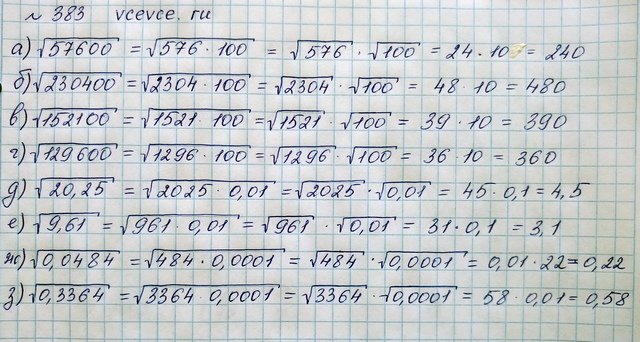 № 383 vcevce.ru
а) √57600 = √576 · 100 = √576 · √100 = 24 · 10 = 240
б) √230400 = √2304 · 100 = √2304 · √100 = 48 · 10 = 480
в) √152100 = √1521 · 100 = √1521 · √100 = 39 · 10 = 390
г) √129600 = √1296 · 100 = √1296 · √100 = 36 · 10 = 360
д) √20,25 = √2025 · 0,01 = √2025 · √0,01 = 45 · 0,1 = 4,5
е) √9,61 = √961 · 0,01 = √961 · √0,01 = 31 · 0,1 = 3,1
ж) √0,0484 = √484 · 0,0001 = √484 · √0,0001 = 0,01 · 22 = 0,22
з) √0,3364 = √3364 · 0,0001 = √3364 · √0,0001 = 58 · 0,01 = 0,58